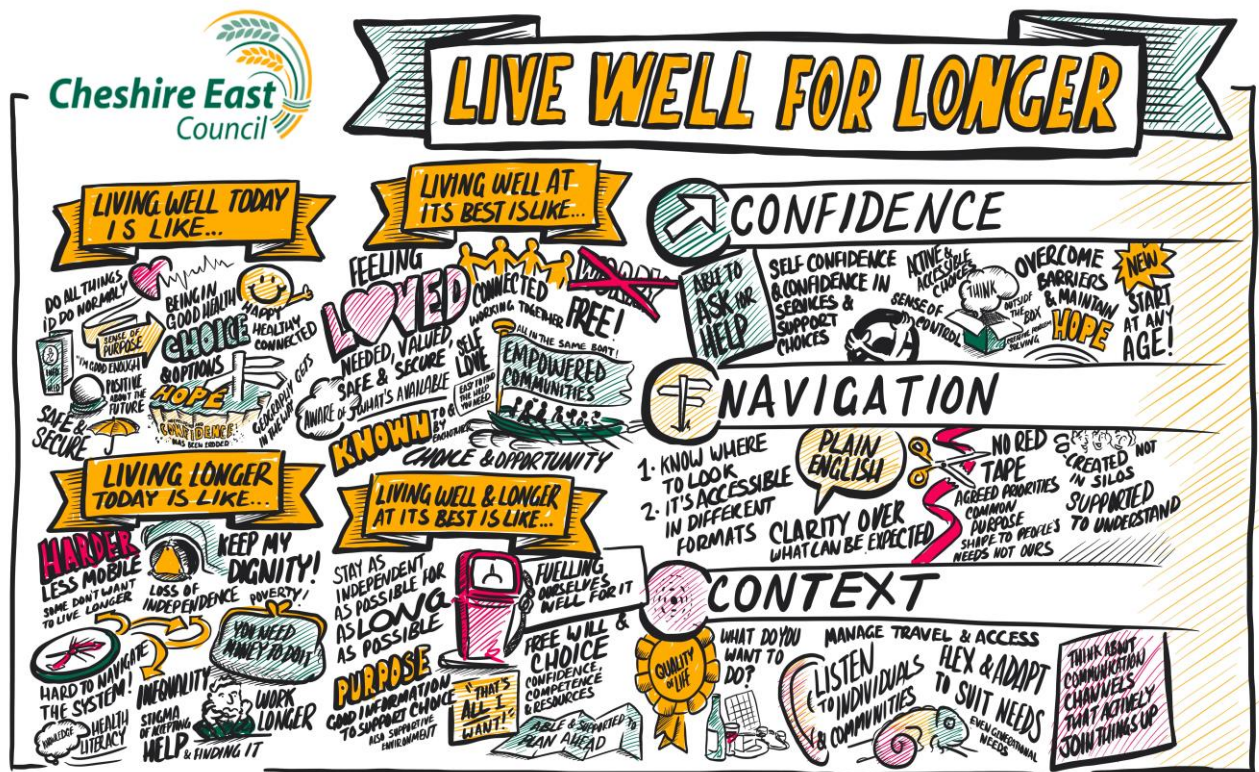 Cheshire East
Council
LIVE WELL FOR LONGER
LIVING WELL TODAY
IS LIKE...
DO ALL THINGS
I'D DO NORMALY
BEING IN
GOOD HEALTH
HAPPY
HEALTHY
CONNECTED
SENSE OF
PURPOSE
"I'M GOOD ENOUGH"
CHOICE
& OPTIONS
POSITIVE
ABOUT THE
FUTURE
HOPE
CONFIDENCE
HAS BEEN ERODED
GEOGRAPHY GETS
IN THE WAY
SAFE &
SECURE
LIVING WELL AT
ITS BEST IS LIKE...
FEELING
LOVED
CONNECTED
WORKING TOGETHER
FREE!
NEEDED, VALUED,
SAFE & SECURE
SELF
LOVE
ALL IN THE SAME BOAT!
EMPOWERED
COMMUNITIES
AWARE OF WHAT'S AVAILABLE
EASY TO FIND
THE HELP
YOU NEED
KNOWN TO &
BY
EACHOTHER
CHOICE & OPPORTUNITY
LIVING LONGER
TODAY IS LIKE...
HARDER
LESS MOBILE
SOME DON'T WANT
TO LIVE LONGER
LOSS OF
INDEPENDENCE
KEEP MY
DIGNITY!
POVERTY!
YOU NEED
MONEY TO DO IT
HARD TO NAVIGATE
THE SYSTEM!
KNOWLEDGE
HEALTH
LITERACY
INEQUALITY
STIGMA
OF ACCEPTING
HELP & FINDING IT
WORK
LONGER
LIVING WELL & LONGER
AT ITS BEST IS LIKE...
STAY AS
INDEPENDENT
AS POSSIBLE FOR
AS LONG
AS POSSIBLE
FUELLING
OURSELVES
WELL FOR IT
PURPOSE
GOOD INFORMATION
TO SUPPORT CHOICE
ALSO SUPPORTIVE
ENVIRONMENT
"THAT'S
ALL I
WANT!"
FREE WILL &
CHOICE
CONFIDENCE,
COMPETENCE
& RESOURCES
ABLE & SUPPORTED TO
PLAN AHEAD
CONFIDENCE
ABLE TO
ASK FOR
HELP
SELF CONFIDENCE
& CONFIDENCE IN
SERVICES &
SUPPORT
CHOICES
ACTIVE &
ACCESSIBLE
CHOICES
SENSE OF
CONTROL
THINK
OUTSIDE
THE BOX
PROBLEM
SOLVING
OVERCOME
BARRIERS
& MAINTAIN
HOPE
NEW
START
AT ANY
AGE!
NAVIGATION
1. KNOW WHERE
TO LOOK
2. IT'S ACCESSIBLE
IN DIFFERENT
FORMATS
PLAIN
ENGLISH
CLARITY OVER
WHAT CAN BE EXPECTED
NO RED
TAPE
AGREED PRIORITIES
COMMON
PURPOSE
SHAPE TO PEOPLE'S
NEEDS NOT OURS
CREATED NOT
IN SILOS
SUPPORTED
TO UNDERSTAND
CONTEXT
QUALITY
OF LIFE
WHAT DO YOU
WANT TO
DO?
MANAGE TRAVEL & ACCESS
LISTEN
TO INDIVIDUALS
& COMMUNITIES
FLEX & ADAPT
TO SUIT NEEDS
EVEN GENERATIONAL
NEEDS
THINK ABOUT
COMMUNICATION
CHANNELS
THAT ACTIVELY
JOIN THINGS UP